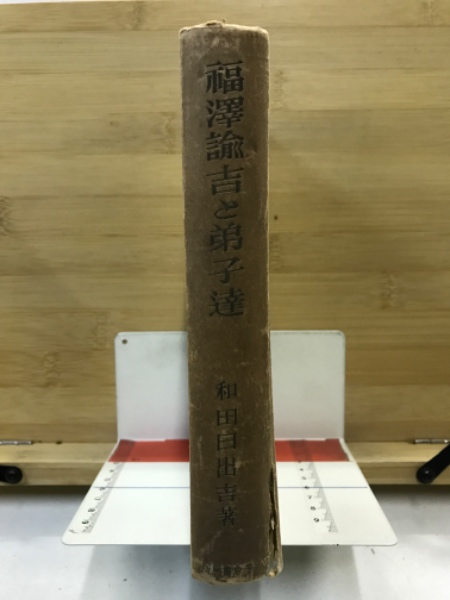 福澤諭吉と弟子達
和田日出吉著